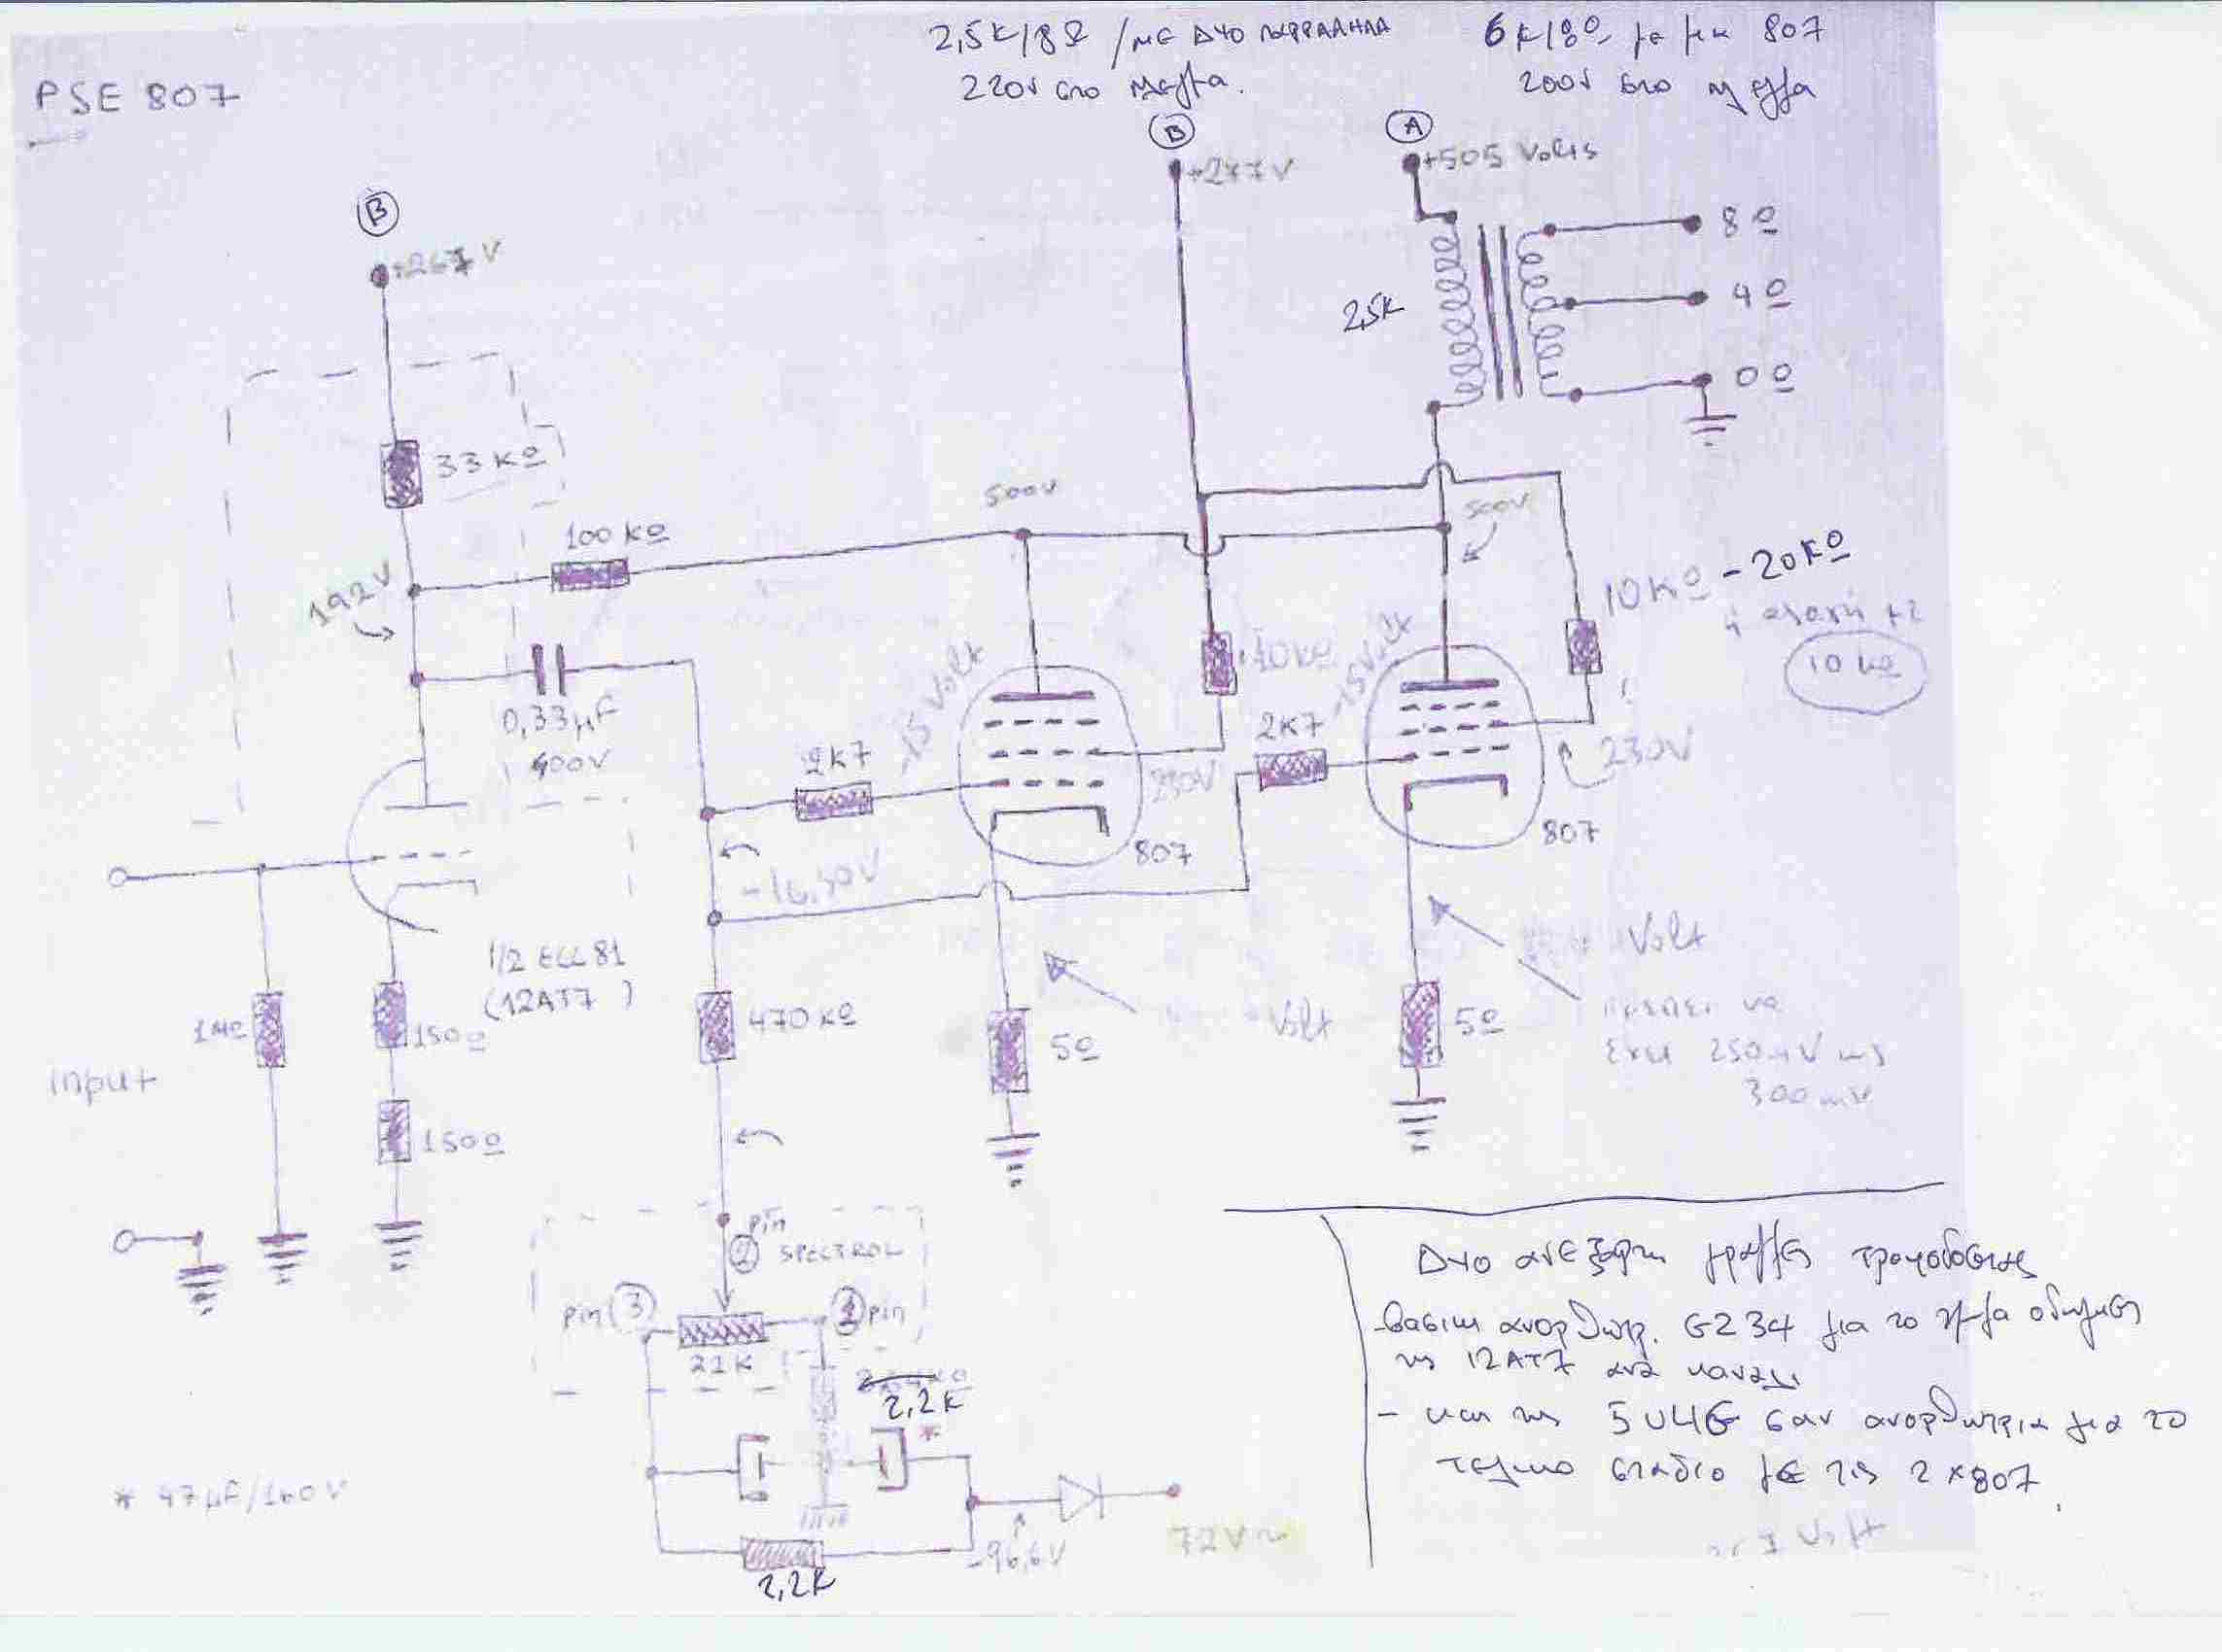 PSE 807
2,5K/8Ω / ΜΕ ΔΥΟ ΠΑΡΑΛΛΗΛΑ
220V στο
6K/8Ω με μια 807
200V στο
B
+267V
B
+277V
A
+505 Volts
8Ω
4Ω
0Ω
2,5K
33KΩ
100KΩ
192V
500V
500V
10KΩ - 20KΩ
10KΩ
0,33μF
400V
2K7
-15 Volt
10KΩ
230V
807
2K7
-15Volt
230V
807
-16,50V
1/2 ECC81
(12AT7)
1MΩ
input
150Ω
150Ω
470KΩ
5Ω
Volt
5Ω
Volt
πρεπει να
εχει 250mV ως
300mV
pin
2 SPECTROL
pin 3
1 pin
21K
2,2K
*
* 47μF/160V
2,2K
-96,6V
72V~
Δυο γραμμες τροφοδοσιας
GZ34 για το
της 12AT7 ανα καναλι
- και της 5U4G σαν ανορθωτρια για το
τελικο σταδιο με τις 2x807.